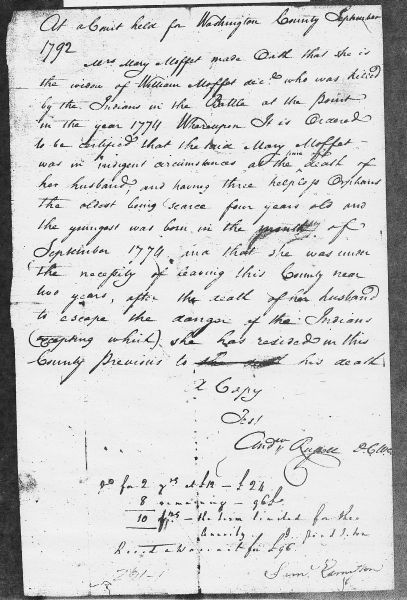 At a Court held for Washington County September
1792
Mrs Mary Moffet made Oath that she is
the widow of William Moffet decd who was killed
by the Indians in the Battle at the Point
in the year 1774 Whereupon It is Ordered
to be certified that the said Mary Moffet
was in indigent circumstances at the time death of
her husband, and having three helpless Orphans
the oldest being scarce four years old and
the youngest was born in the month of
September 1774 and that she was under
the necessity of leaving this County near
two years, after the death of her husband
to escape the danger of the Indians
(excepting which) she has resided in this
County Previous to his death
A Copy
Test
Andw Russell DCWC
for 2 yrs at £12 - £24
8 remaining - 96£
10 yrs - the term limited for the